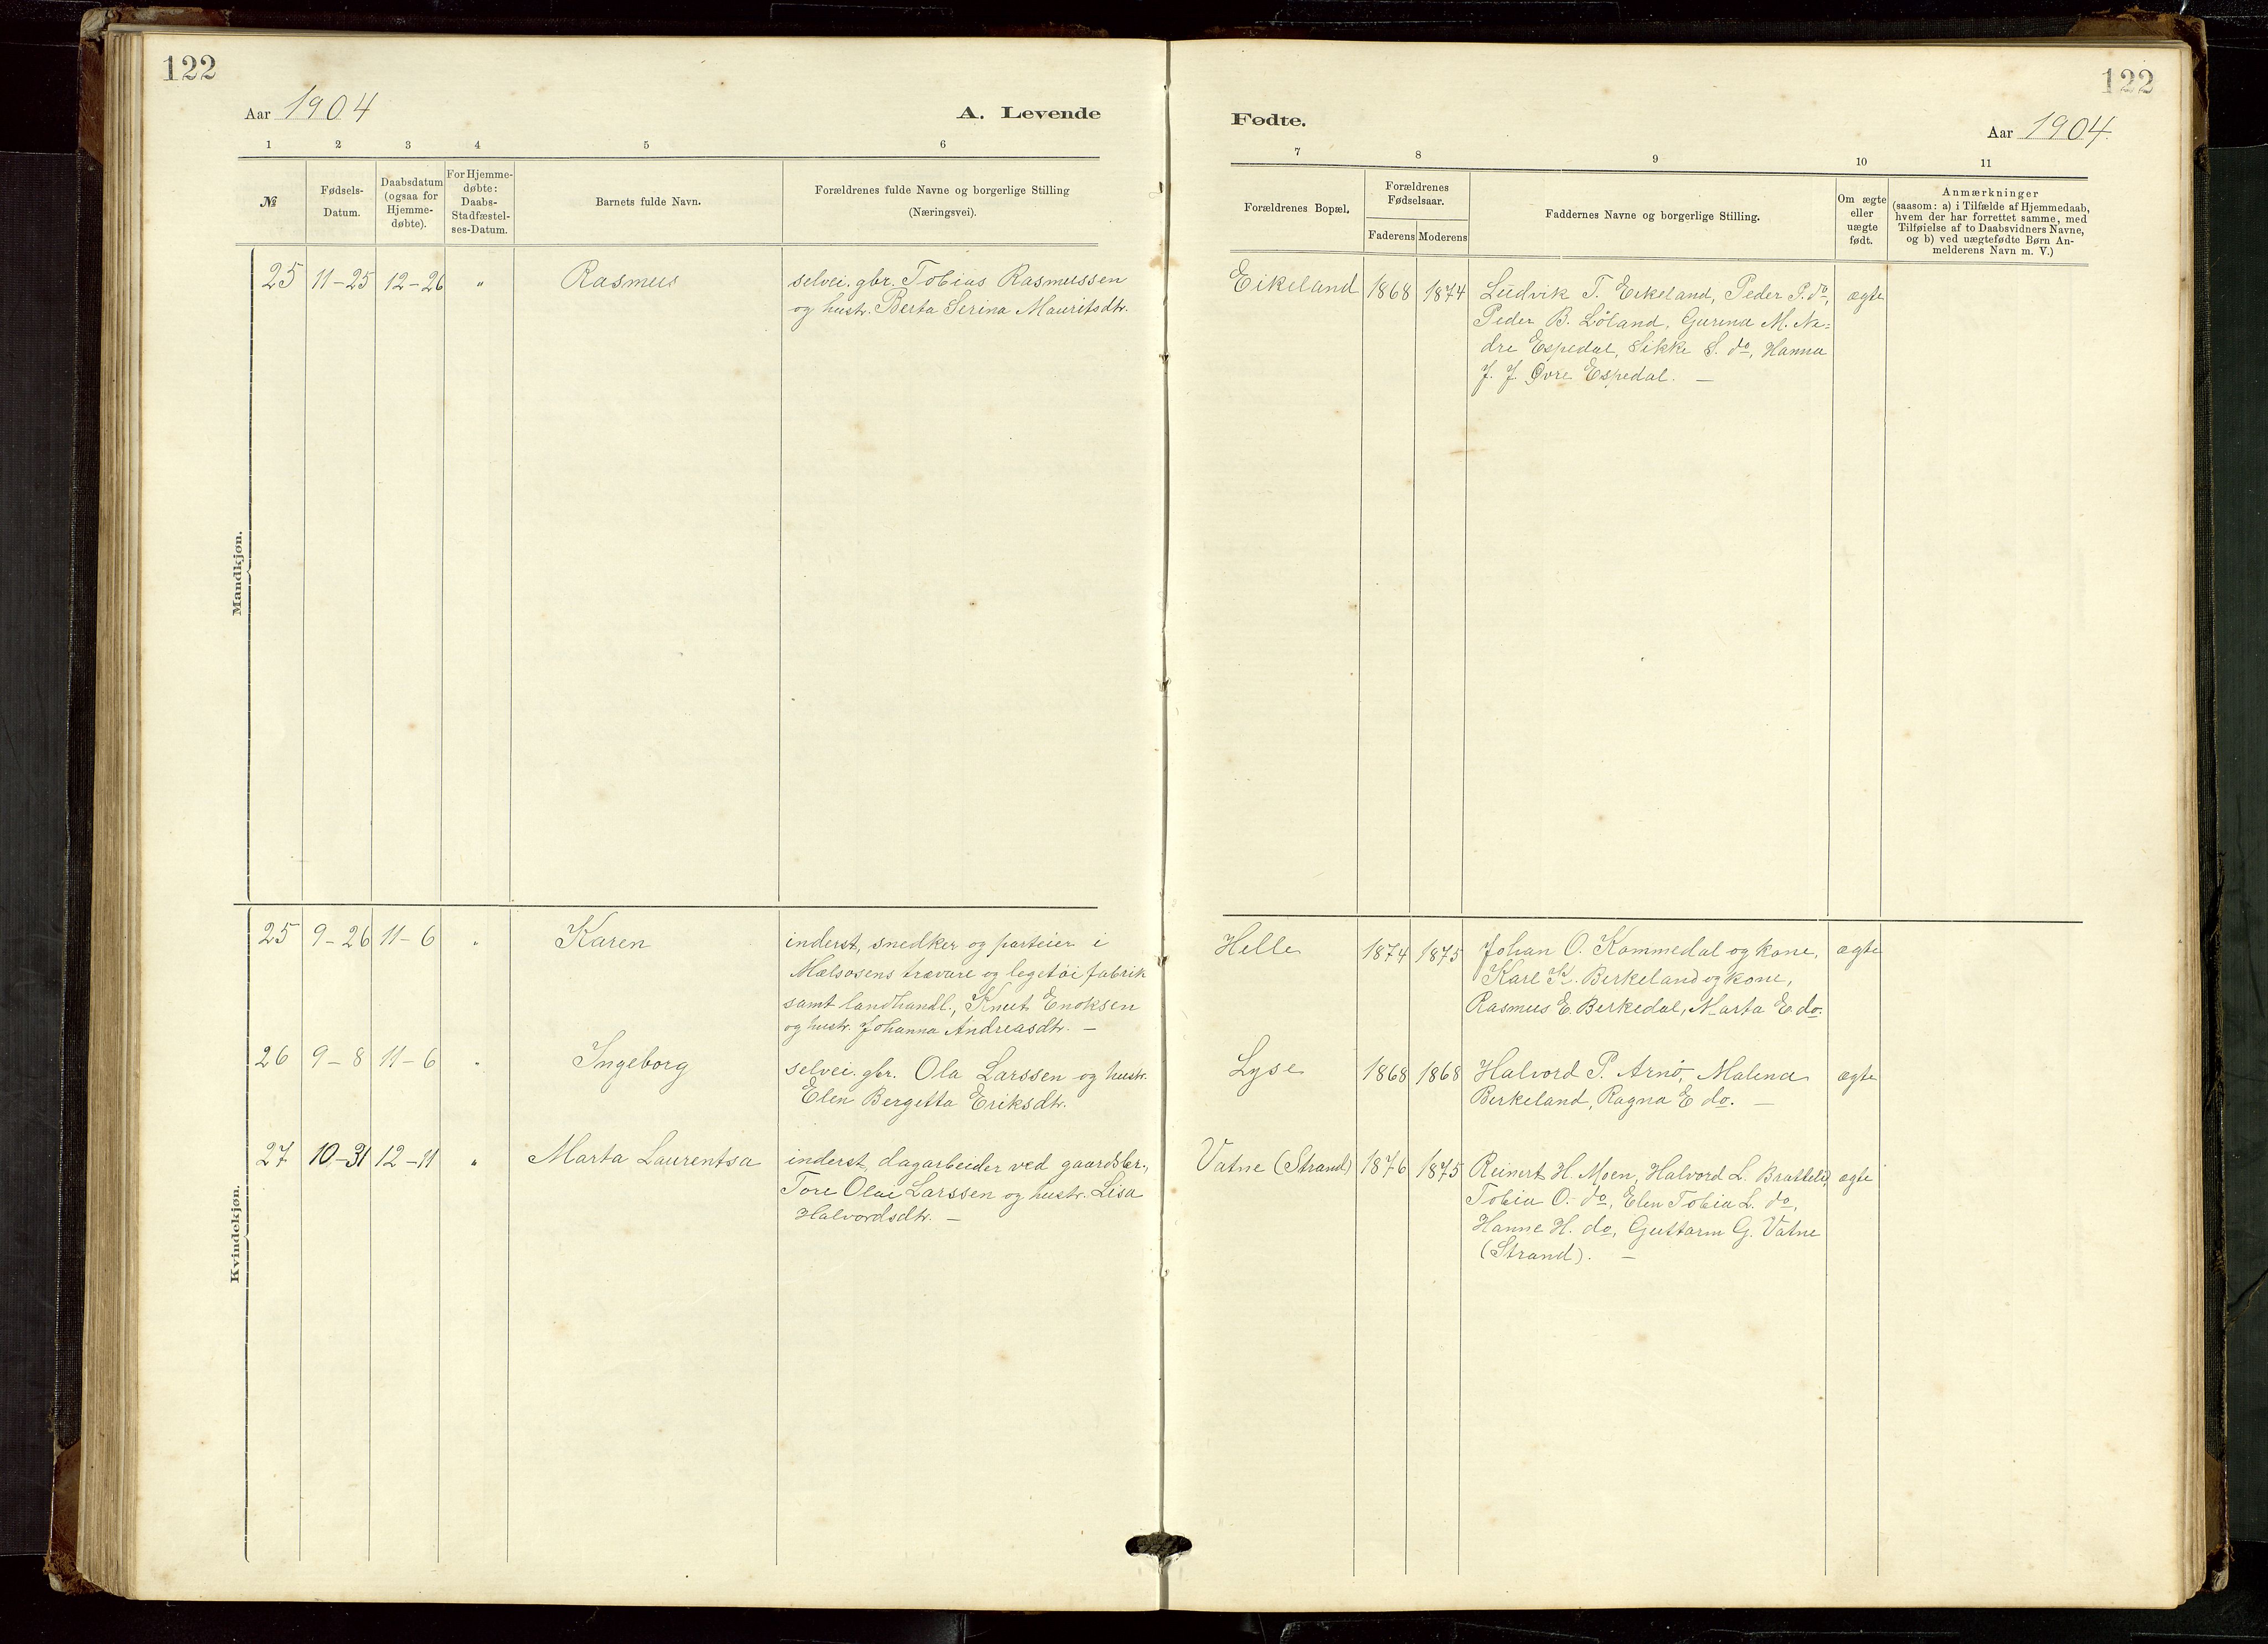 122
Aar 1904
A. Levende
1 2 3 4 5 6
№
Fødsels-
Datum.
Daabsdatum
(ogsaa for
Hjemme-
døbte).
For Hjemme-
døbte:
Daabs-
Stadfæstel-
ses-Datum.
Barnets fulde Navn.
Forældrenes fulde Navne og borgerlige Stilling
(Næringsvei).
Mandkjøn.
25 11-25 12-26 " Rasmus selvei. gbr. Tobias Rasmussen
og hustr. Berta Serina Mauritsdtr.
Kvindekjøn.
25 9-26 11-6 " Karen inderst, snedker og parteier i
Mælsosens trævare og legetøi fabrik
samt landhandl., Knut Enoksen
og hustr. Johanna Andreasdtr. —
26 9-8 11-6 " Ingeborg selvei. gbr. Ola Larssen og hustr.
Elen Bergetta Eriksdtr.
27 10-31 12-11 " Marta Laurentsa inderst, dagarbeider ved gaardsbr.,
Tore Olai Larssen og hustr. Lisa
Halvordsdtr. —
122
Fødte.
Aar 1904.
7 8 9 10 11
Forældrenes Bopæl.
Forældrenes
Fødselsaar.
Faderens Moderens
Faddernes Navne og borgerlige Stilling.
Om ægte
eller
uægte
født.
Anmærkninger
(saasom: a) i Tilfælde af Hjemmedaab,
hvem der har forrettet samme, med
Tilføielse af to Daabsvidners Navne,
og b) ved uægtefødte Børn An-
melderens Navn m. V.)
Eikeland 1868 1874 Ludvik T. Eikeland, Peder P. do,
ægte
Peder B. Löland, Gurina M. Ne=
dre Espedal, Sikke S. do, Hanna
J. J. Øvre Espedal. —
Helle 1874 1875 Johan O. Kommedal og kone, ægte
Karl K. Berkeland og kone,
Rasmus E. Berkedal, Marta E. do.
Lyse 1868 1868 Halvord P. Arnö, Malena ægte
Berkeland, Ragna E do. —
Vatne (Strand) 1876 1875 Reinert H. Moen, Halvord L. Bratteli, ægte
Tobia O. do, Elen Tobia L. do,
Hanne H. do, Guttorm G. Vatne
(Strand). —